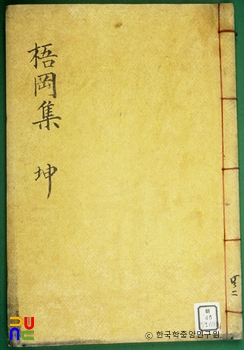 梧岡集 坤
RUNE
© 한국학중앙연구원